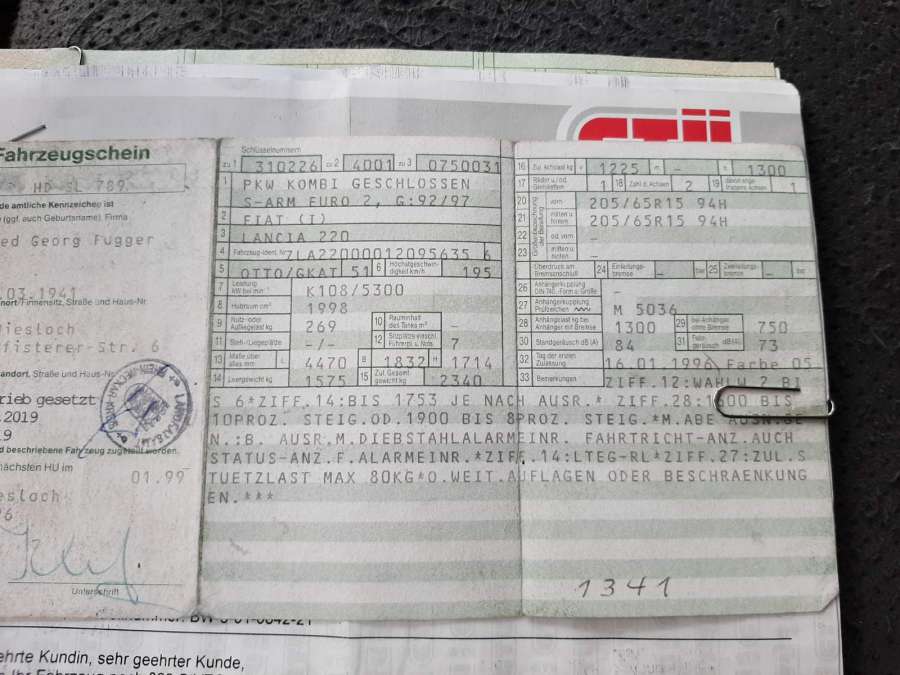 Fahrzeugschein
HD-SL 789
de amtliche Kennzeichen ist
(ggf. auch Geburtsname), Firma
ed Georg Fugger
.03.1941
nort/Firmensitz, Straße und Haus-Nr.
iesloch
fisterer-Str. 6
andort, Straße und Haus-Nr.
rieb gesetzt
.2019
9
d beschriebene Fahrzeug zugeteilt worden.
ächsten HU im
01.99
esloch
96
Unterschrift
Schlüsselnummern
zu 1 310226 zu 2 4001 zu 3 0750031
1 PKW KOMBI GESCHLOSSEN
S-ARM EURO 2, G:92/97
2 FIAT (I)
3 LANCIA 220
4 Fahrzeug-Ident.-Nr. ZLA22000012095635 6
5 OTTO/GKAT 51 6 Höchstgeschwindigkeit km/h 195
7 Leistung kW bei min⁻¹ K108/5300
8 Hubraum cm³ 1998
9 Nutz- oder Aufliegelast kg 269 10 Rauminhalt des Tanks m³ -
11 Steh-/Liegeplätze -/- 12 Sitzplätze einschl. Führerpl. u. Nots. 7
13 Maße über alles mm L 4470 B 1832 H 1714
14 Leergewicht kg 1575 15 Zul. Gesamtgewicht kg 2340
16 Zul. Achslast kg v 1225 m - h 1300
17 Räder u./od. Gleisketten 1 18 Zahl d. Achsen 2 19 1
20 vorn 205/65R15 94H
21 mitten u. hinten 205/65R15 94H
22 od. vorn -
23 mitten u. hinten -
Überdruck am Bremsanschluß 24 Einleitungsbremse - bar 25 Zweileitungsbremse - bar
26 Anhängerkupplung DIN 740.., Form u. Größe -
27 Anhängerkupplung Prüfzeichen M 5036
28 Anhängelast kg bei Anhänger mit Bremse 1300 29 bei Anhänger ohne Bremse 750
30 Standgeräusch dB (A) 84 31 Fahrgeräusch dB(A) 73
32 Tag der ersten Zulassung 16.01.1996 Farbe 05
33 Bemerkungen ZIFF.12:WAHLW.2 BI
S 6*ZIFF.14:BIS 1753 JE NACH AUSR.* ZIFF.28:1400 BIS
10PROZ. STEIG.OD.1900 BIS 8PROZ. STEIG.*M.ABE AUSN.GE
N.:B. AUSR.M.DIEBSTAHLALARMEINR. FAHRTRICHT-ANZ.AUCH
STATUS-ANZ.F.ALARMEINR.*ZIFF.14:LTEG-RL*ZIFF.27:ZUL.S
TUETZLAST MAX 80KG*O.WEIT.AUFLAGEN ODER BESCHRAENKUNG
EN.***
1341
ehrte Kundin, sehr geehrter Kunde,